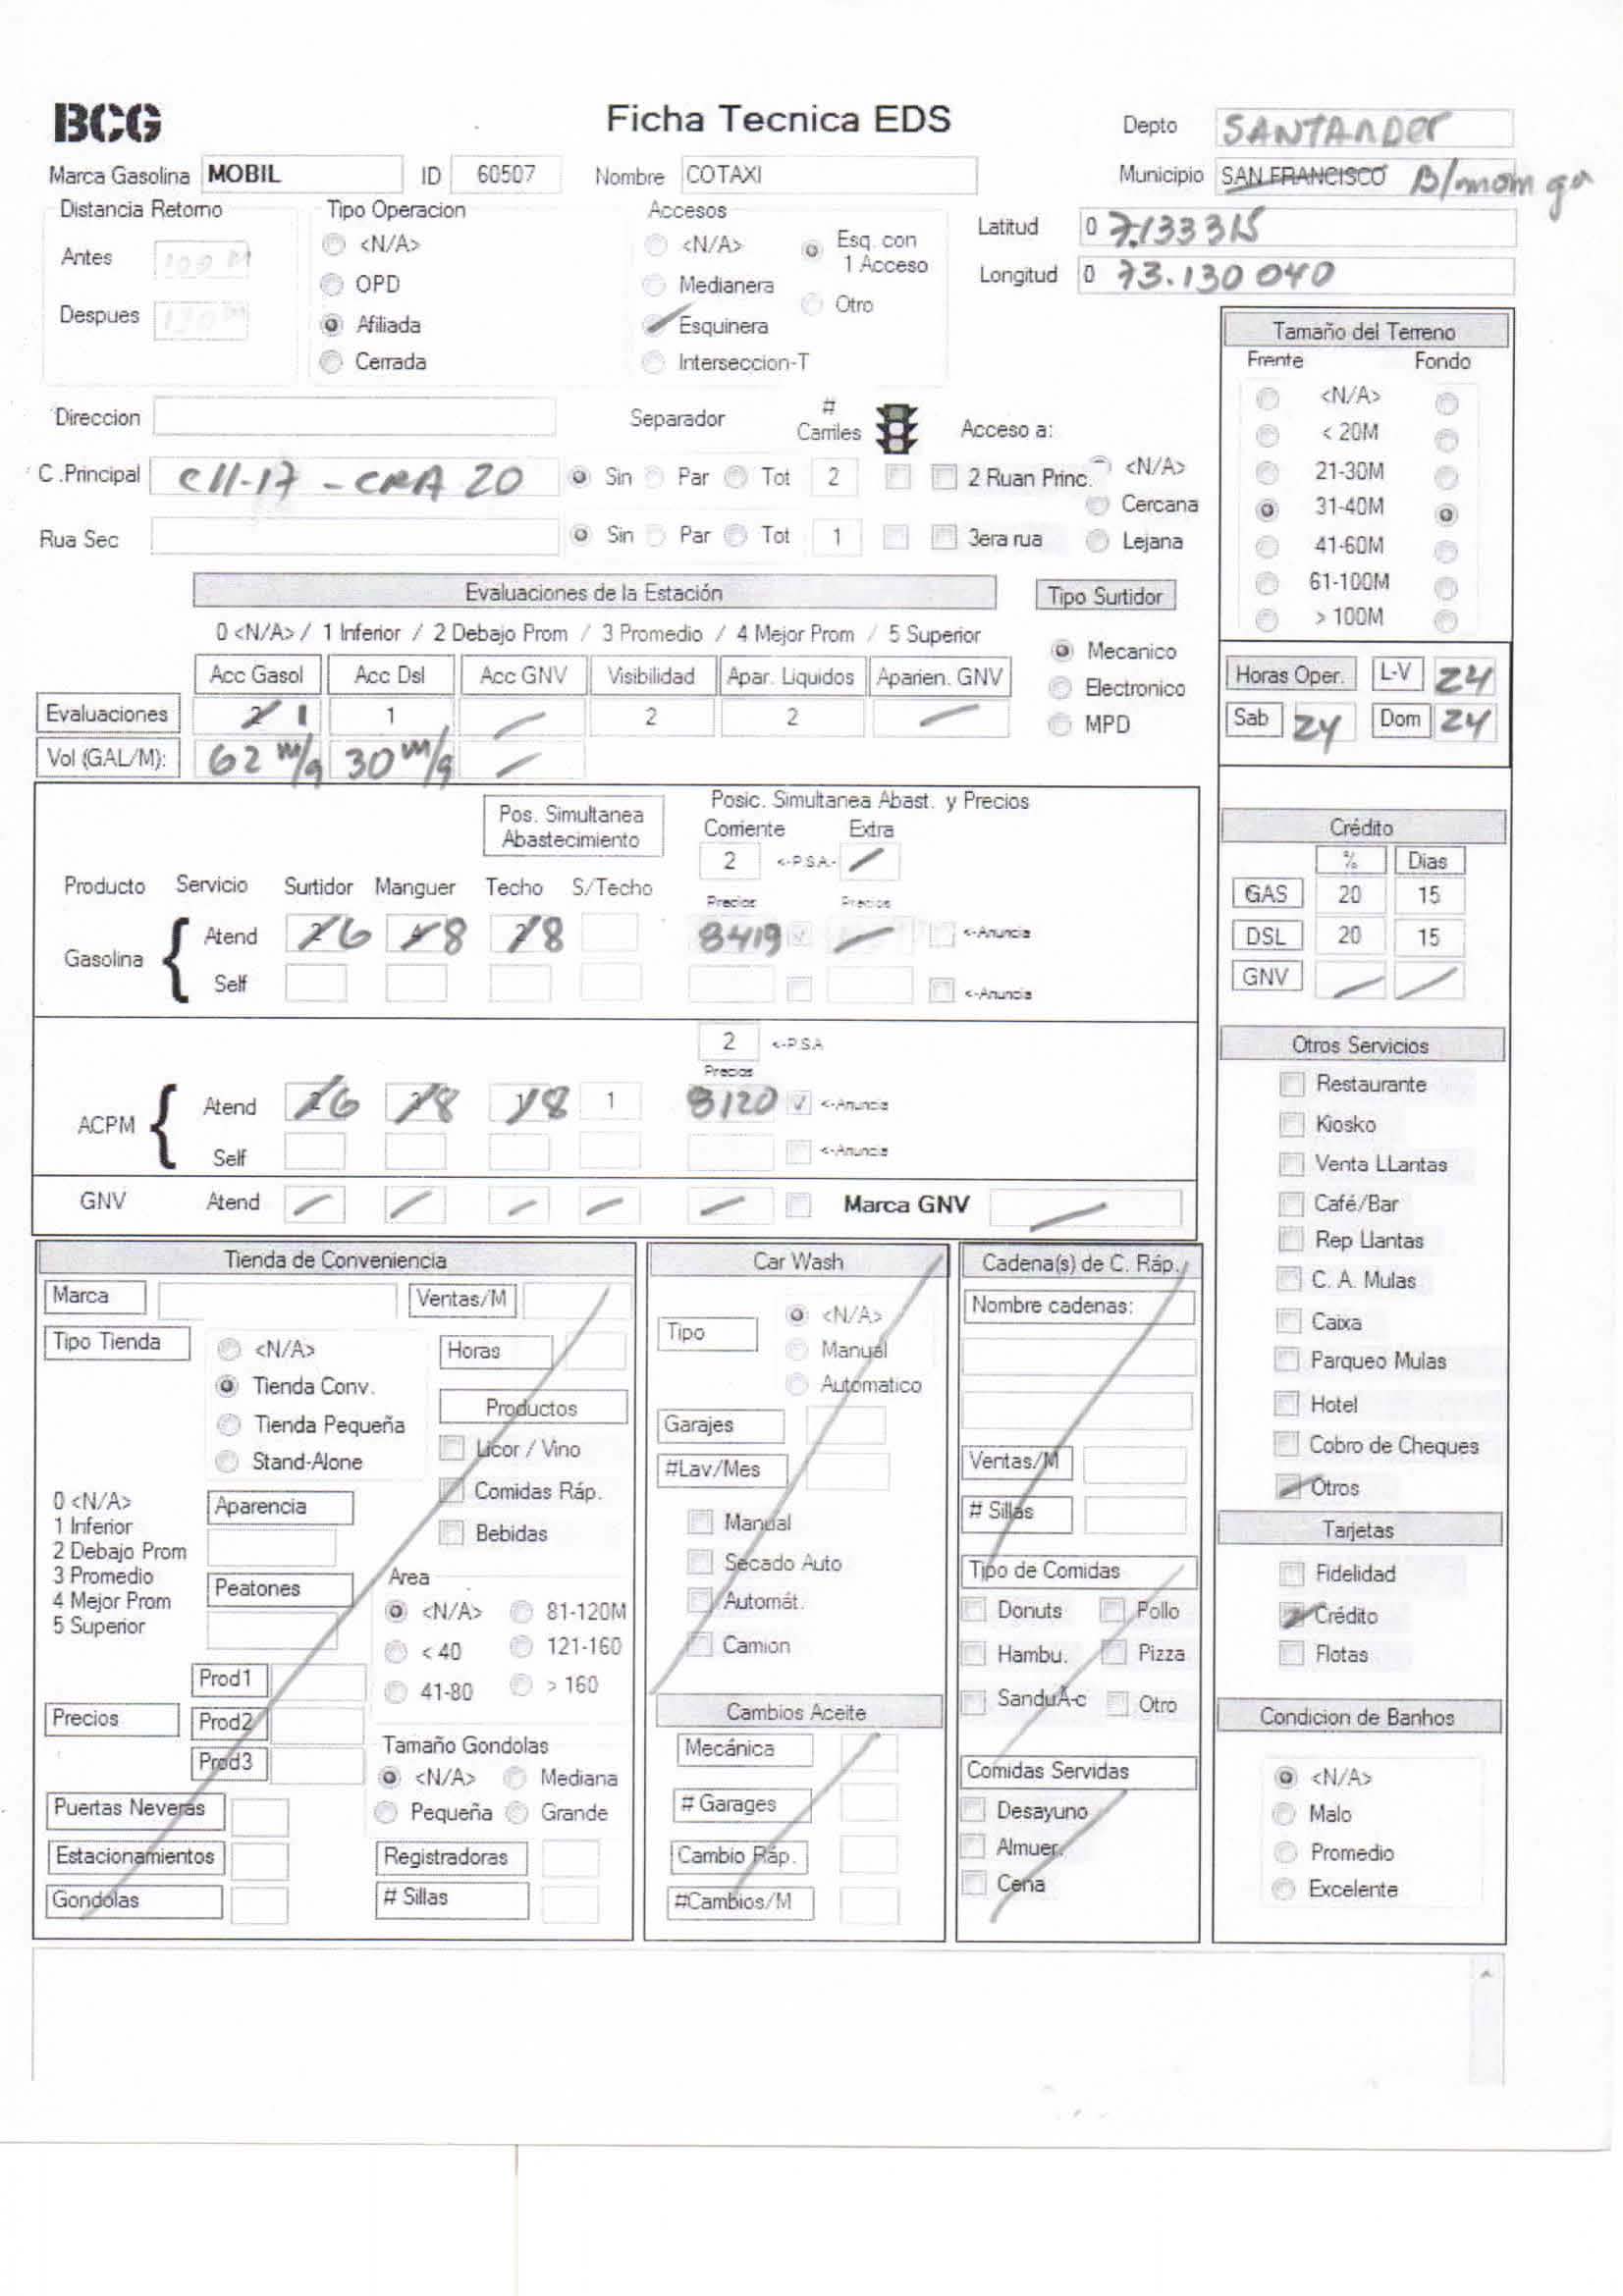 BCG
Ficha Tecnica EDS
Depto SANTANDER
Marca Gasolina MOBIL ID 60507 Nombre COTAXI
Municipio SAN FRANCISCO B/manga
Distancia Retorno
Antes 100 M
Despues
Tipo Operacion
<N/A>
OPD
Afiliada
Cerrada
Accesos
<N/A>
Medianera
Esquinera
Interseccion-T
Esq. con 1 Acceso
Otro
Latitud 0 7.133315
Longitud 0 73.130 040
Tamaño del Terreno
Frente Fondo
<N/A>
< 20M
21-30M
31-40M
41-60M
61-100M
> 100M
Direccion
Separador # Carriles Acceso a:
C .Principal Cll-17 - CRA 20 Sin Par Tot 2 2 Ruan Princ. <N/A>
Cercana
Rua Sec Sin Par Tot 1 3era rua Lejana
Evaluaciones de la Estación
0 <N/A> / 1 Inferior / 2 Debajo Prom / 3 Promedio / 4 Mejor Prom / 5 Superior
Acc Gasol Acc Dsl Acc GNV Visibilidad Apar. Liquidos Aparien. GNV
Evaluaciones 2 1 1 2 2
Vol (GAL/M): 62 m/g 30 m/g
Tipo Surtidor
Mecanico
Electronico
MPD
Horas Oper. L-V 24
Sab 24 Dom 24
Pos. Simultanea Abastecimiento
Posic. Simultanea Abast. y Precios
Corriente Extra
2 <-P.S.A-
Producto Servicio Surtidor Manguer Techo S/Techo Precios Precios
Gasolina
Atend 2 6 4 8 2 8 8419 <-Anuncia
Self <-Anuncia
2 <-P.S.A
Precios
ACPM
Atend 2 6 8 1 8 1 8120 <-Anuncia
Self <-Anuncia
GNV Atend Marca GNV
Crédito
% Dias
GAS 20 15
DSL 20 15
GNV
Otros Servicios
Restaurante
Kiosko
Venta LLantas
Café/Bar
Rep Llantas
C. A. Mulas
Caixa
Parqueo Mulas
Hotel
Cobro de Cheques
Otros
Tarjetas
Fidelidad
Crédito
Flotas
Condicion de Banhos
<N/A>
Malo
Promedio
Excelente
Tienda de Conveniencia
Marca Ventas/M
Tipo Tienda
<N/A>
Tienda Conv.
Tienda Pequeña
Stand-Alone
Horas
Productos
Licor / Vino
Comidas Ráp.
Bebidas
0 <N/A>
1 Inferior
2 Debajo Prom
3 Promedio
4 Mejor Prom
5 Superior
Aparencia
Peatones
Area
<N/A> 81-120M
< 40 121-160
41-80 > 160
Precios
Prod1
Prod2
Prod3
Tamaño Gondolas
<N/A> Mediana
Pequeña Grande
Puertas Neveras
Estacionamientos
Gondolas
Registradoras
# Sillas
Car Wash
Tipo
<N/A>
Manual
Automatico
Garajes
#Lav/Mes
Manual
Secado Auto
Automát.
Camion
Cambios Aceite
Mecánica
# Garages
Cambio Ráp.
#Cambios/M
Cadena(s) de C. Ráp.
Nombre cadenas:
Ventas/M
# Sillas
Tipo de Comidas
Donuts Pollo
Hambu. Pizza
SanduÃ-c Otro
Comidas Servidas
Desayuno
Almuer.
Cena